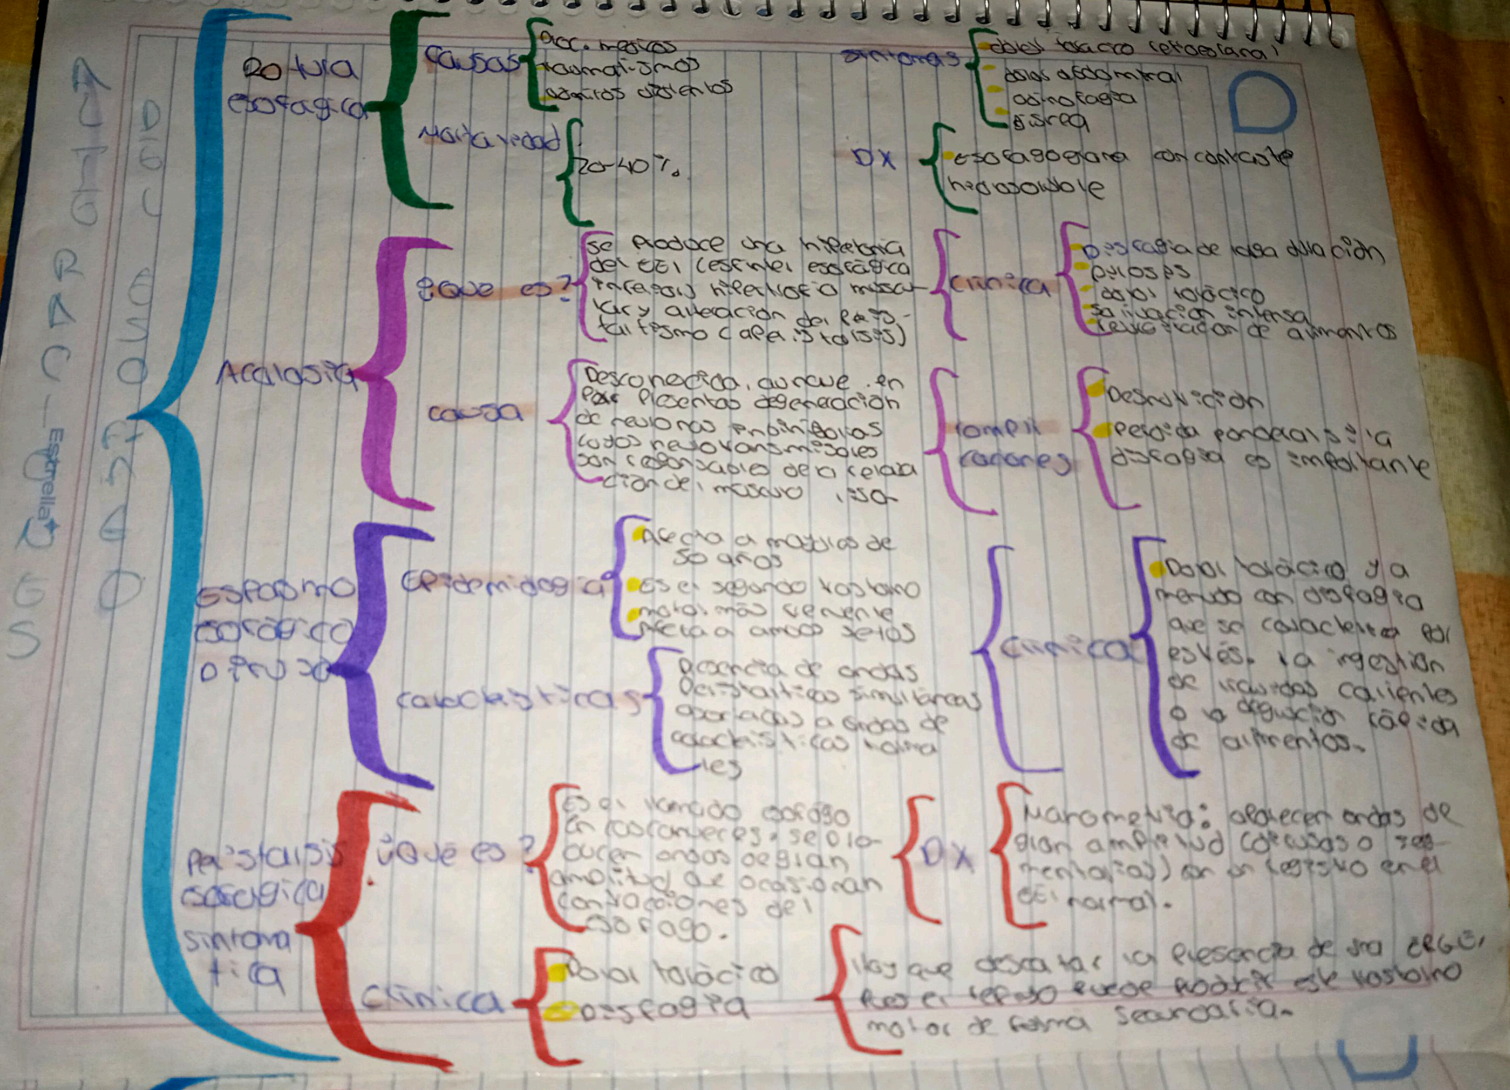 Rotura
esofagica
causas
Acc. medicos
traumatismos
Mortaliedad
20-40%.
sintomas
dolor toracico retroesternal
dolor abdominal
odinofagia
disnea
DX
Esofagograma con contraste
hidrosoluble
Acalasia
¿que es?
se produce una hipertonia
del EEI (esfinter esofagico
inferior) hipertrofia muscu-
lar y alteración del peris-
taltismo (aperistalsis)
clinica
Disfagia de larga duración
pirosis
dolor toracico
salivación intensa
regurgitacion de alimentos
causa
Desconocida, aunque en
Parte presentas degeneracion
de neuronas inhibitorias
cuyos neurotransmisores
son responsables de la relaja
cion del musculo liso
compli
caciones
Desnutricion
perdida ponderal si la
disfagia es importante
Espasmo
esofágico
difuso
Epidemiologia
Afecta a mayores de
50 años
Es el segundo trastorno
motor más frecuente
Afecta a ambos sexos
caracteristicas
presencia de ondas
peristalticas simultáneas
asociadas a ondas de
caracteristicas norma
les
clinica
Dolor torácico y a
menudo con disfagia
que se caracteriza por
estrés, la ingestión
de liquidos calientes
o la deglución rápida
de alimentos.
Peristalsis
esofágica
sintoma
tica
¿Que es?
Es el llamado esofago
en cascanueces, se pro-
ducen ondas de gran
amplitud que ocasionan
contracciones del
esofago.
DX
Manometria: aparecen ondas de
gran amplitud (difusas o seg-
mentarias) con un registro en el
EEI normal.
clinica
Dolor torácico
Disfagia
Hay que descartar la presencia de una ERGE,
pues el reflujo puede producir este trastorno
motor de forma secundaria.
Estrella